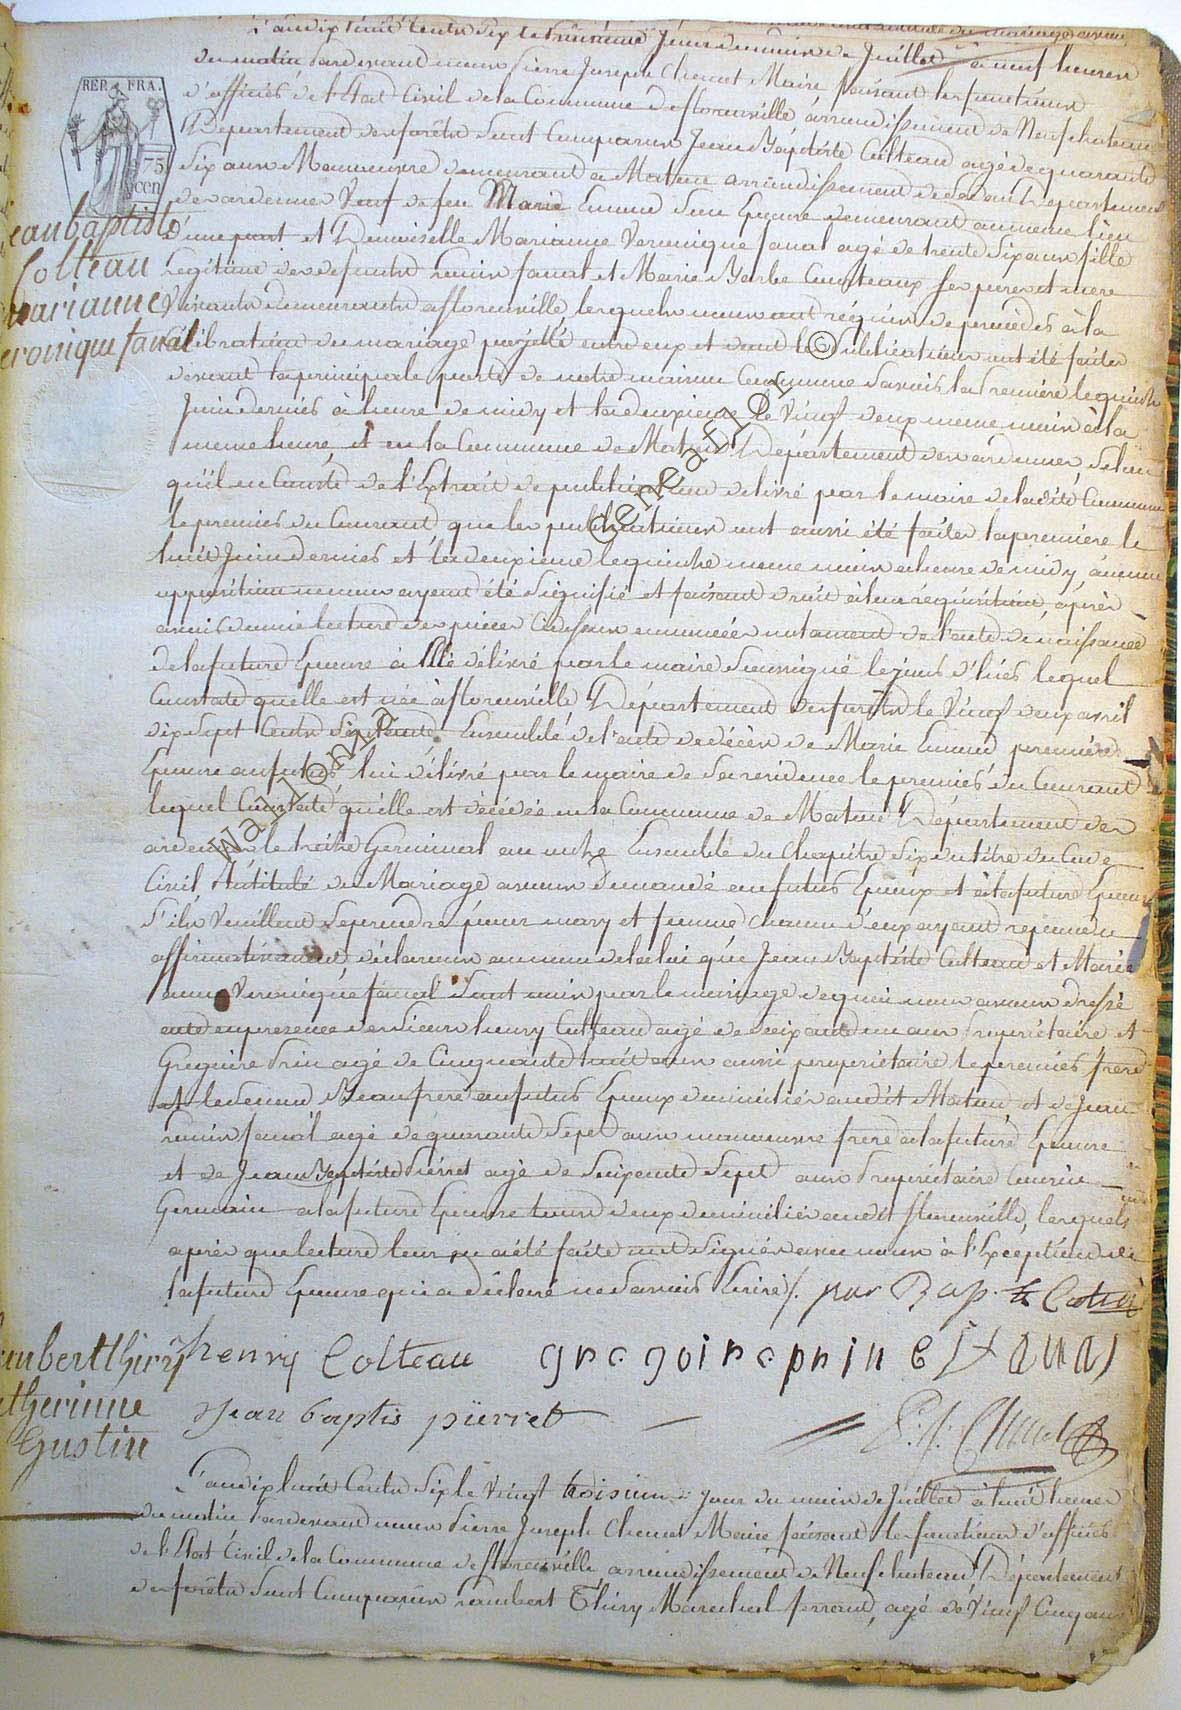 L'an dix huit Cents Six le troisieme Jour du mois de Juillet à neuf heures
du matin Pardevant nous Pierre Joseph Chenot Maire faisant les fonctions
d'officier de l'Etat Civil de la Commune de florenville arrondissement de Neufchateau
REP. FRA.
75 cen
Département des forêts Sont Comparus Jean Baptiste Colteau agé de quarante
Six ans Manouvre demeurant a Moton arrondissement de Sedan Département
des ardennes Veuf de feu Marie Son Epouse demeurant au meme lieu
d'une part et Demoiselle Marianne Veronique fanal agé de trente Six ans fille
Legitime de defunts fanal et Marie Barbe ses pere et mere
Vivants demeurants a florenville, lesquels nous ont réquis de procèder à la
Célibration du mariage projetté entre eux et dont les Publications ont été faites
devant la principale porte de notre maison Commune Savoir la Premiere le quinze
Juin dernier à heure de midy et la deuxieme le Vingt deux meme mois à la
meme heure et en la Commune de Moton Département des ardennes Selon
qu'il en Conste de l'Extrait de publication delivré par le maire de ladite Commune
le premier du Courant que les publications ont aussi été faites la premiere le
huit Juin dernier et la deuxieme le quinze meme mois a heure de midy, aucune
opposition nous ayant été Signifié et faisant droit à leur requisition après
avoir donné lecture des pieces Cidessus notament de l'acte de naissance
de la future Epouse à Elle délivré par le maire Soussigné le jour d'hier lequel
Constate quelle est née à florenville Département des forêts le Vingt deux avril
dix Sept Cents Septante Ensemble de l'acte de décès de Marie premiere
Epouse au futur lui délivré par le maire de Sa residence le premier du Courant
lequel Constate qu'elle est décédée en la Commune de Moton Département des
ardennes le treize Germinal an onze Ensemble du Chapitre Six du titre du Code
Civil Intitulé du Mariage avons demandé au futur Epoux et à la future Epouse
S'ils Veuillent Se prendre pour mary et femme Chacun d'eux ayant repondu
affirmativement déclarons au nom de la loi que Jean Baptiste Colteau et Marie
anne Veronique fanal Sont unis par le mariage de quoi nous avons dressé
acte en presence de Sieurs henry Colteau agé de Soixante un ans Propriétaire et
Gregoire Prin agé de Cinquante huit ans aussi propriétaire le premier frere
et le Second Beaufrere au futur Epoux domiciliés audit Moton et de Jean
fanal agé de quarante Sept ans manouvre frere à la future Epouse
et de Jean Baptiste Pierret agé de Soixante Sept ans Propriétaire Cousin
Germain a la future Epouse tous deux domiciliés audit florenville, lesquels
après que lecture leur en a été faite ont Signés avec nous à l'Exception de
la future Epouse qui a déclaré ne Savoir Ecrire
henry Colteau
gregoire prin
Jean baptis pierret
P. J. Chenot
Jean baptiste
Colteau
marianne
Veronique fanal
Wallonia
Geneaflor ©
Lambert thiry
Catherinne
Gustin
L'an dix huit Cents Six le Vingt troisieme Jour du mois de Juillet à huit heures
du matin Pardevant nous Pierre Joseph Chenot Maire faisant les fonctions d'officier
de l'Etat Civil de la Commune de florenville arrondissement de Neufchateau Département
des forêts Sont Comparus Lambert Thiry Marechal ferrant, agé de Vingt Cinq ans